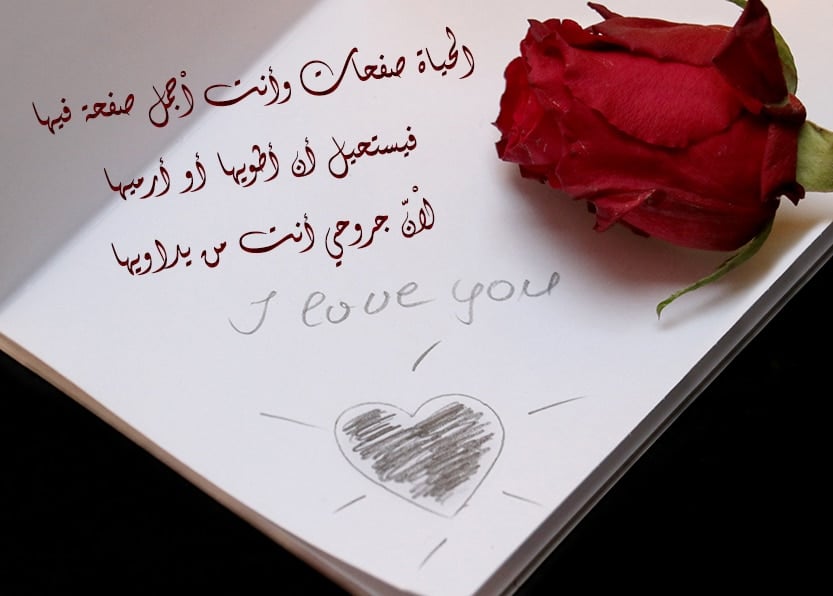 الحياة صفحات وأنت أجمل صفحة فيها
فيستحيل أن أطويها أو أرميها
لأنّ جروحي أنت من يداويها
I love you